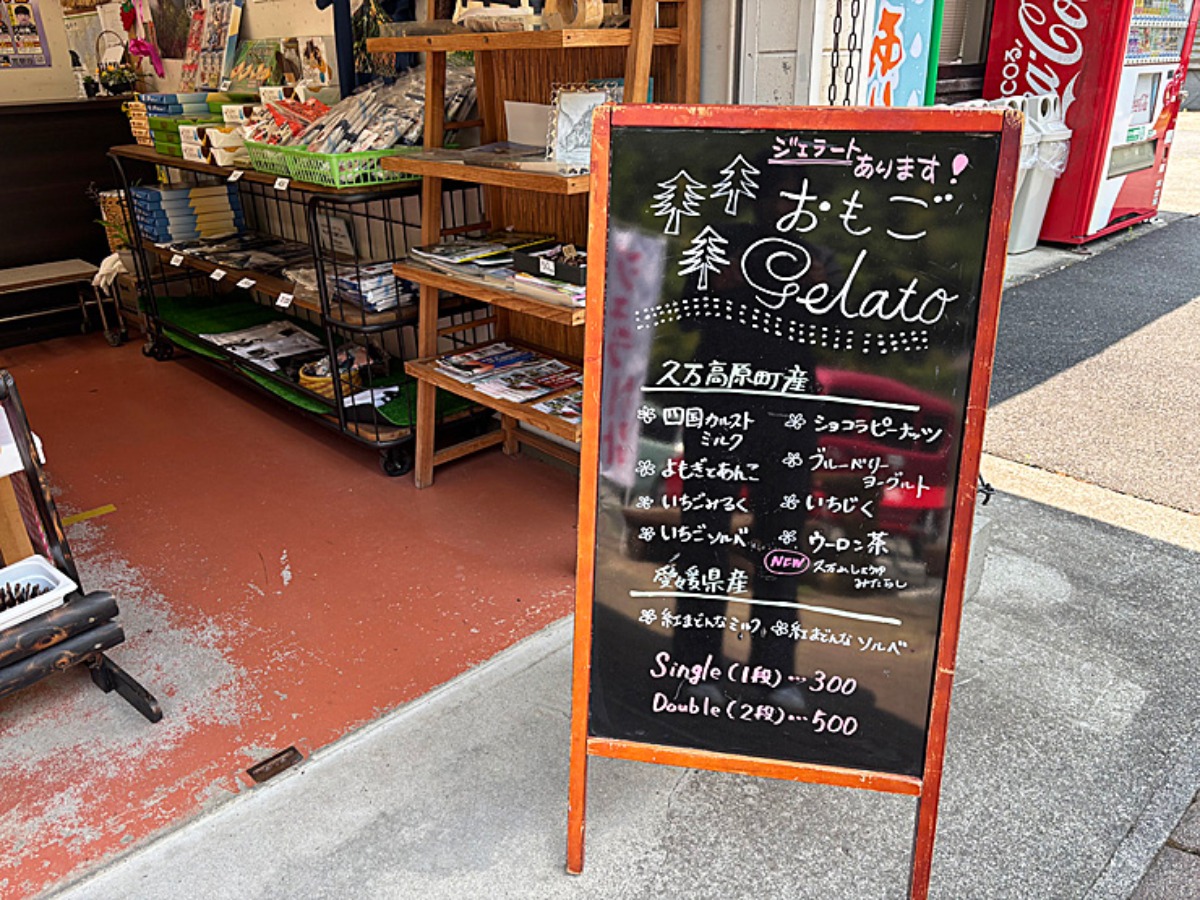 ジェラート
あります!
おもご
Gelato
久万高原町産
四国カルスト
ミルク
よもぎとあんこ
いちごみるく
いちごソルベ
ショコラピーナッツ
ブルーベリー
ヨーグルト
いちじく
ウーロン茶
NEW 久万山しょうゆ
みたらし
愛媛県産
紅まどんなミルク
紅まどんなソルベ
Single(1段)…300
Double(2段)…500
Coca-Cola